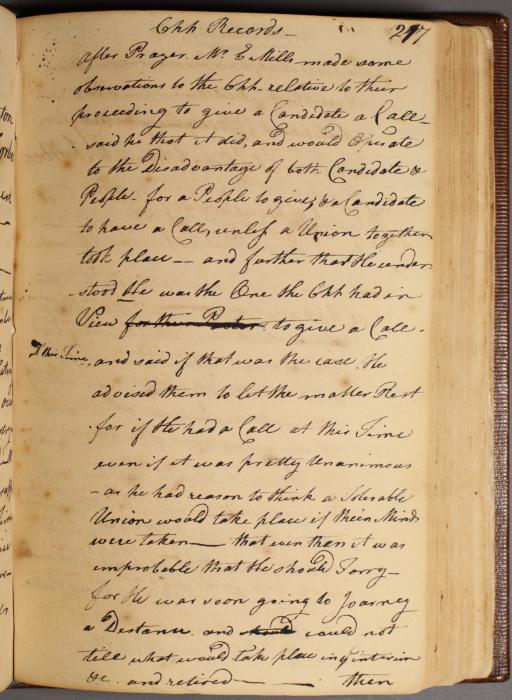 Chh Records
217
after Prayer. Mr. E Mills made some
observations to the Chh. relative to their
proceeding to give a Candidate a Call
said he that it did, and would Operate
to the Disadvantage of both Candidate &
People - for a People to give, & a Candidate
to have a Call, unless a Union together
took place — and further that He under-
stood He was the One the Chh had in
View for their Pastor to give a Call -
at this Time. and said if that was the case He
advised them to let the matter Rest
for if He had a Call at this Time
even if it was pretty Unanimous
- as he had reason to think a Tolerable
Union would take place if their Minds
were taken — that even then it was
improbable that He should Tarry -
for He was soon going to Journey
a Distance. and could not
tell what would take place in ye interim
&c. and retired — then